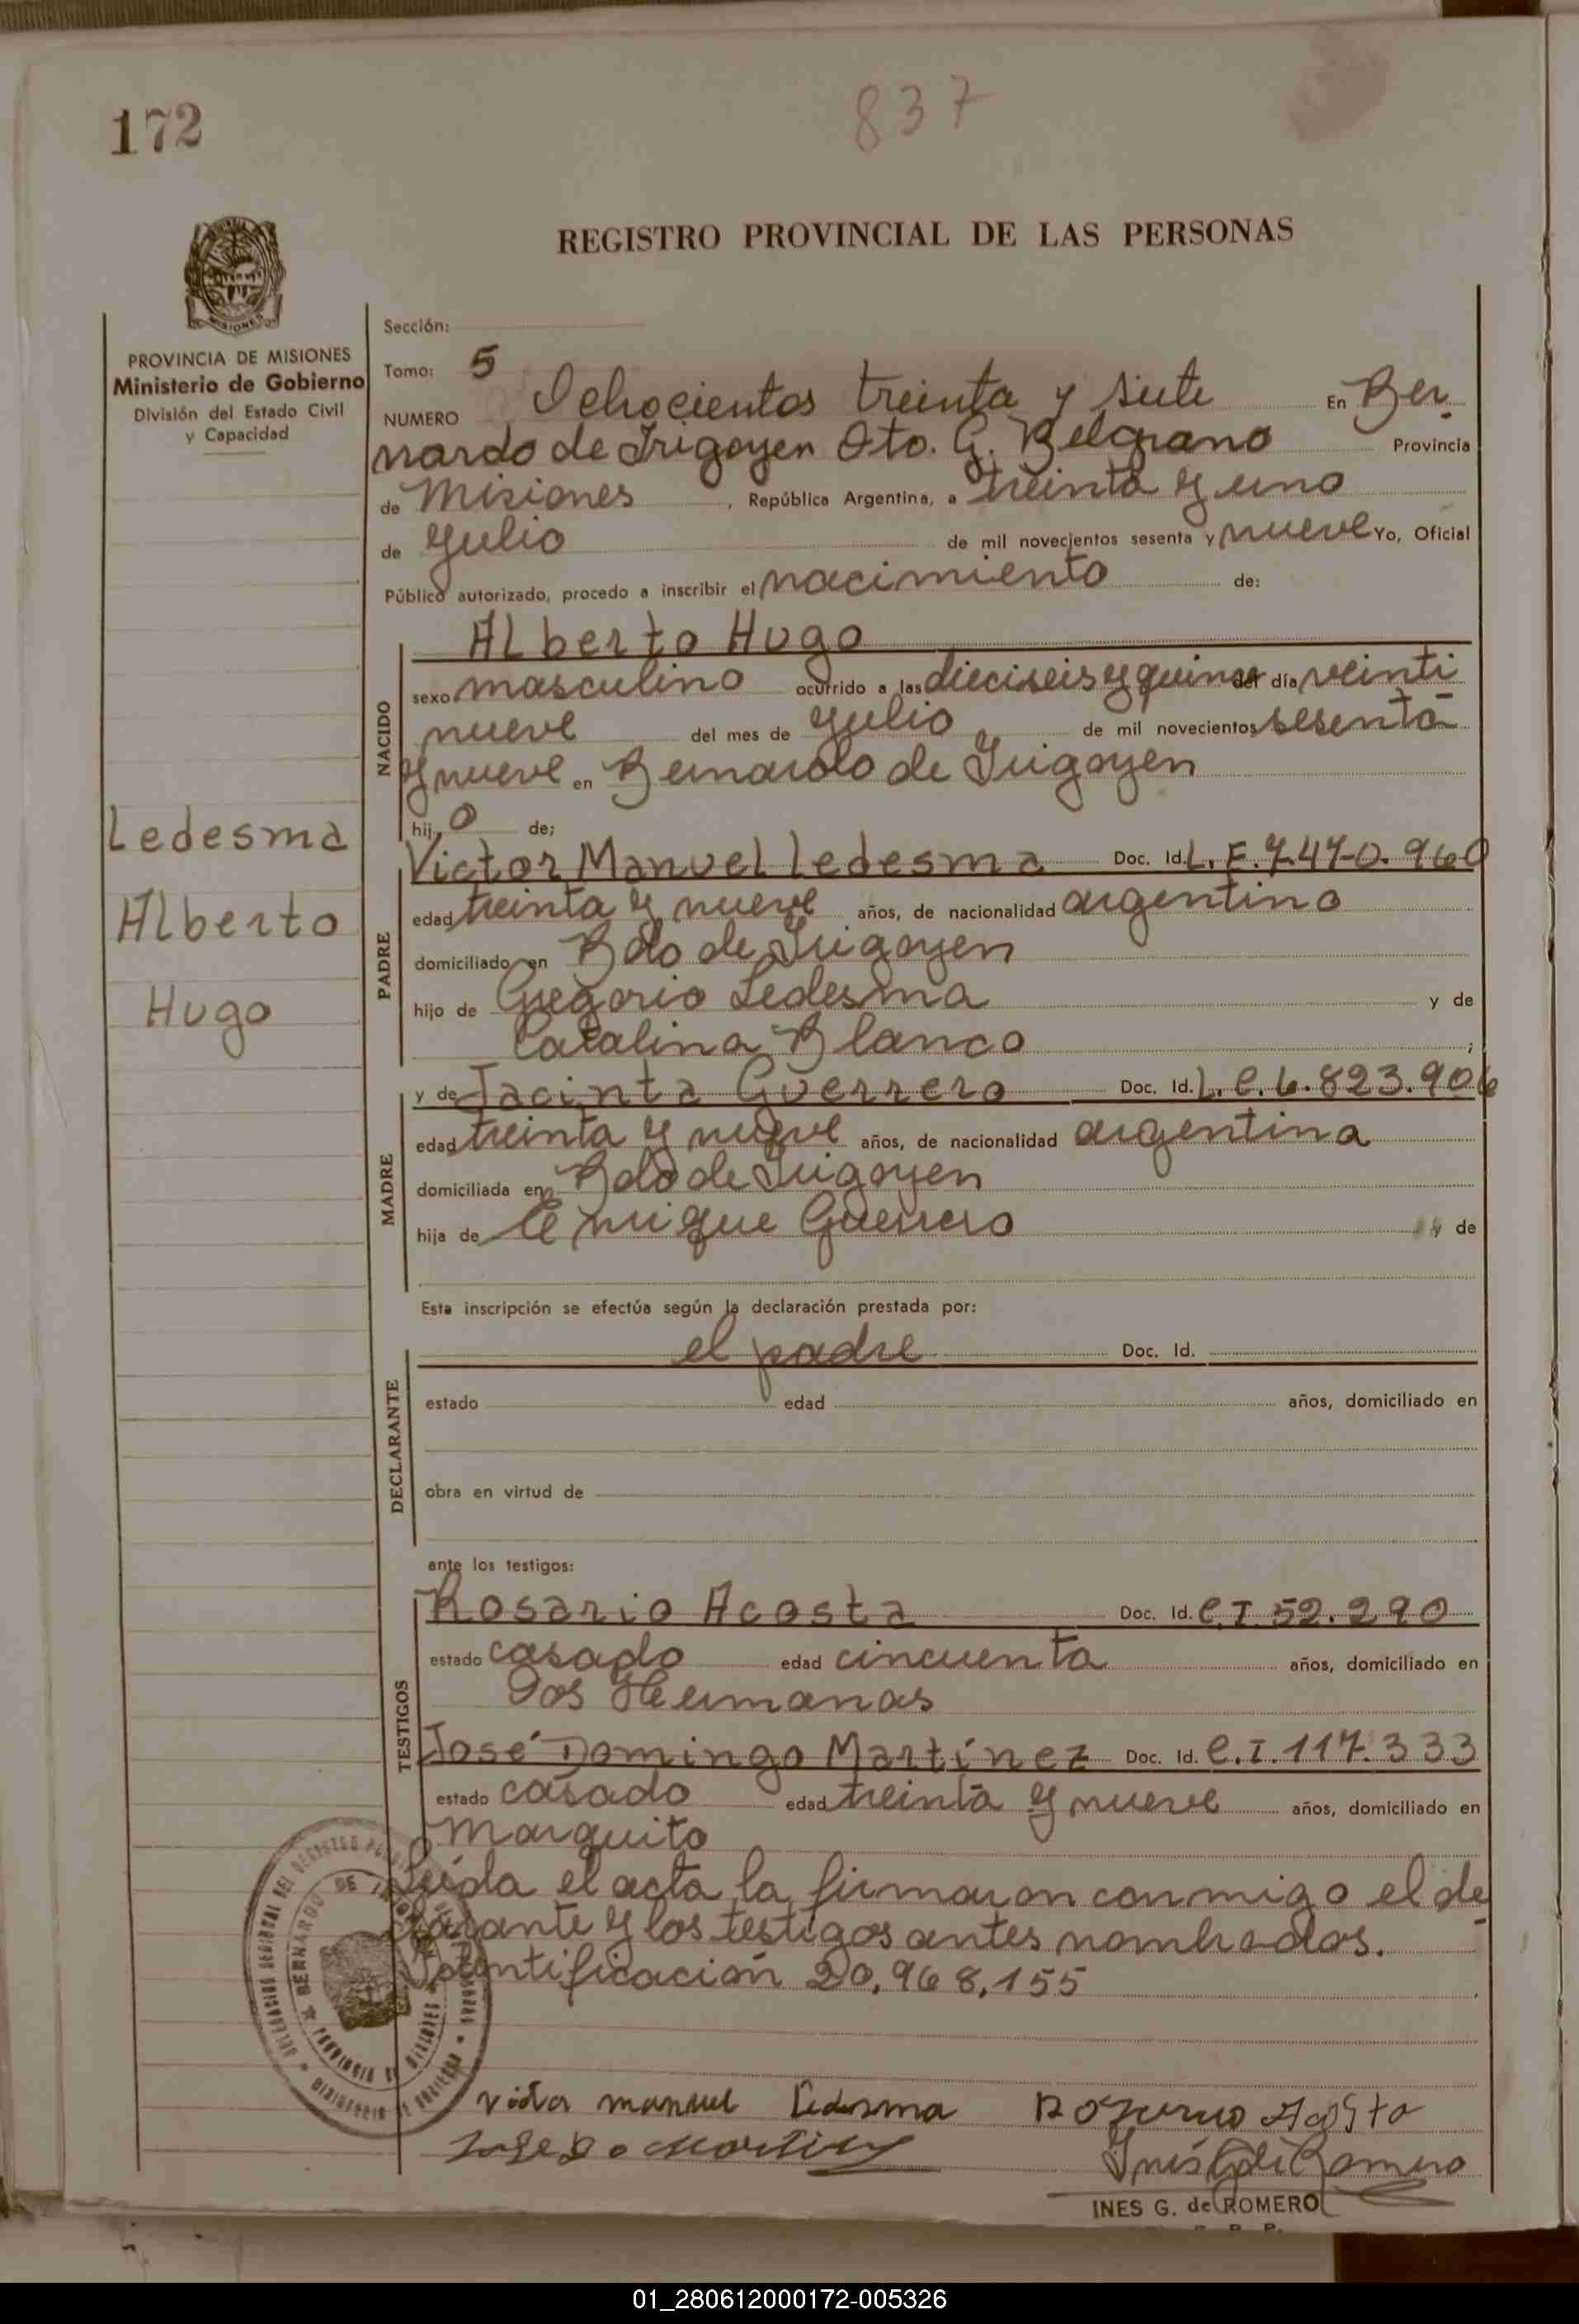 172
837
REGISTRO PROVINCIAL DE LAS PERSONAS
MISIONES
PROVINCIA DE MISIONES
Ministerio de Gobierno
División del Estado Civil
y Capacidad
Sección:
Tomo: 5
NUMERO Ochocientos treinta y siete En Ber
nardo de Irigoyen Dto. G. Belgrano Provincia
de Misiones, República Argentina, a treinta y uno
de Julio de mil novecientos sesenta y nueve Yo, Oficial
Público autorizado, procedo a inscribir el nacimiento de:
Alberto Hugo
NACIDO
sexo masculino ocurrido a las dieciseis y quince del día veinti
nueve del mes de Julio de mil novecientos sesenta
y nueve en Bernardo de Irigoyen
hij o de;
Ledesma
Alberto
Hugo
PADRE
Victor Manuel Ledesma Doc. Id. L.E. 7.470.960
edad treinta y nueve años, de nacionalidad argentino
domiciliado en Bdo de Irigoyen
hijo de Gregorio Ledesma y de
Catalina Blanco ;
MADRE
y de Jacinta Guerrero Doc. Id. L.C. 6.823.906
edad treinta y nueve años, de nacionalidad argentina
domiciliada en Bdo de Irigoyen
hija de Enrique Guerrero y de
Esta inscripción se efectúa según la declaración prestada por:
DECLARANTE
el padre Doc. Id.
estado edad años, domiciliado en
obra en virtud de
ante los testigos:
TESTIGOS
Rosario Acosta Doc. Id. C.I. 52.290
estado casado edad cincuenta años, domiciliado en
Dos Hermanas
José Domingo Martínez Doc. Id. C.I. 117.333
estado casado edad treinta y nueve años, domiciliado en
Marquito
Leída el acta la firmaron conmigo el de
clarante y los testigos antes nombrados.
Identificación 20.968.155
Victor manuel Ledesma Rosario Acosta
José Do Martinez
Inés G de Romero
INES G. de ROMERO
01_280612000172-005326